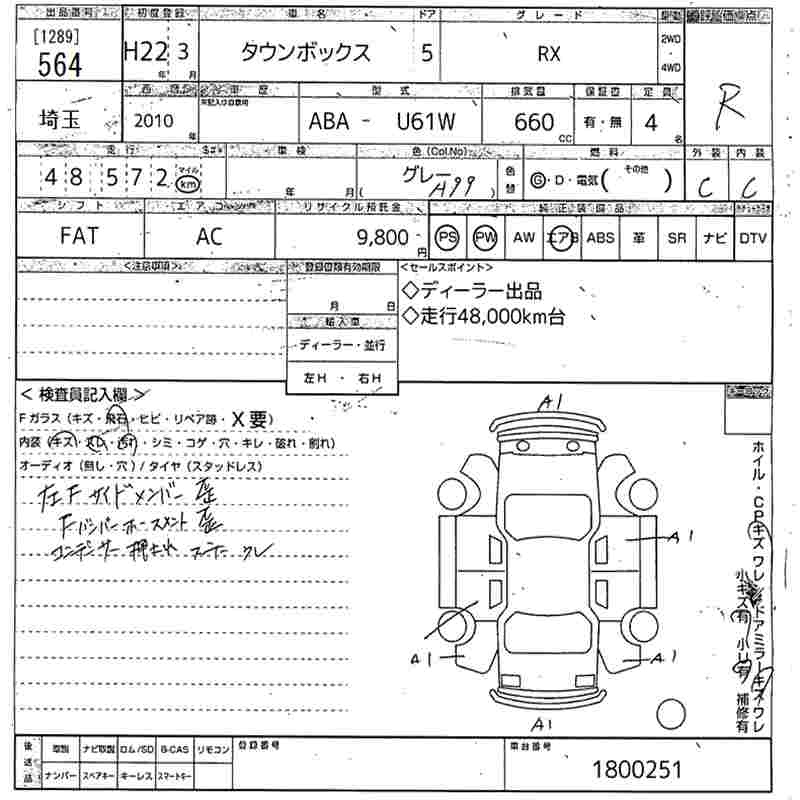 出品番号 初度登録 車名 ドア グレード 駆動 評価点
[1289] 564 H22 年 3 月 タウンボックス 5 RX 2WD ・ 4WD R
埼玉 西暦 2010 年 車歴 型式 ABA - U61W 排気量 660 CC 保証書 有・無 定員 4 名
走行 48572 マイル km 車検 年 月 色(Col.No) グレー ( A99 ) 色替 燃料 G・D・電気( その他 ) 外装 C 内装 C
シフト エアコン リサイクル預託金 純正装備品
FAT AC 9,800 円 PS PW AW エアB ABS 革 SR ナビ DTV
<注意事項> 登録書類有効期限 <セールスポイント>
月 日 ◇ディーラー出品
輸入車 ◇走行48,000km台
ディーラー・並行
左H ・ 右H
<検査員記入欄>
Fガラス(キズ・飛石・ヒビ・リペア跡・X要)
内装(キズ・汚れ・シミ・コゲ・穴・キレ・破れ・削れ)
オーディオ(無し・穴)/タイヤ(スタッドレス)
左Fサイドメンバー
コンデンサー
A1
A1
A1
A1
A1
ホイル・CPキズワレ/ドアミラーキズワレ
小キズ有 小U有 補修有
後送品 取説 ナビ取説 ロム/SD B-CAS リモコン 登録番号 車台番号
ナンバー スペアキー キーレス スマートキー 1800251